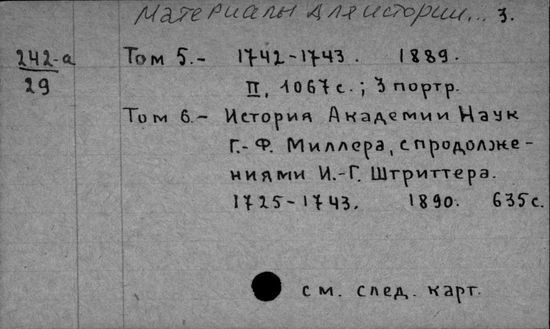 Материалы для истории... 3.
242-а
29
Том 5.- 1742-1743. 1889.
II, 1067 с.; 3 портр.
Том 6.- История Академии Наук
Г.-Ф. Миллера, с продолже-
ниями И.-Г. Штриттера.
1725-1743. 1890. 635 с.
см. след. карт.